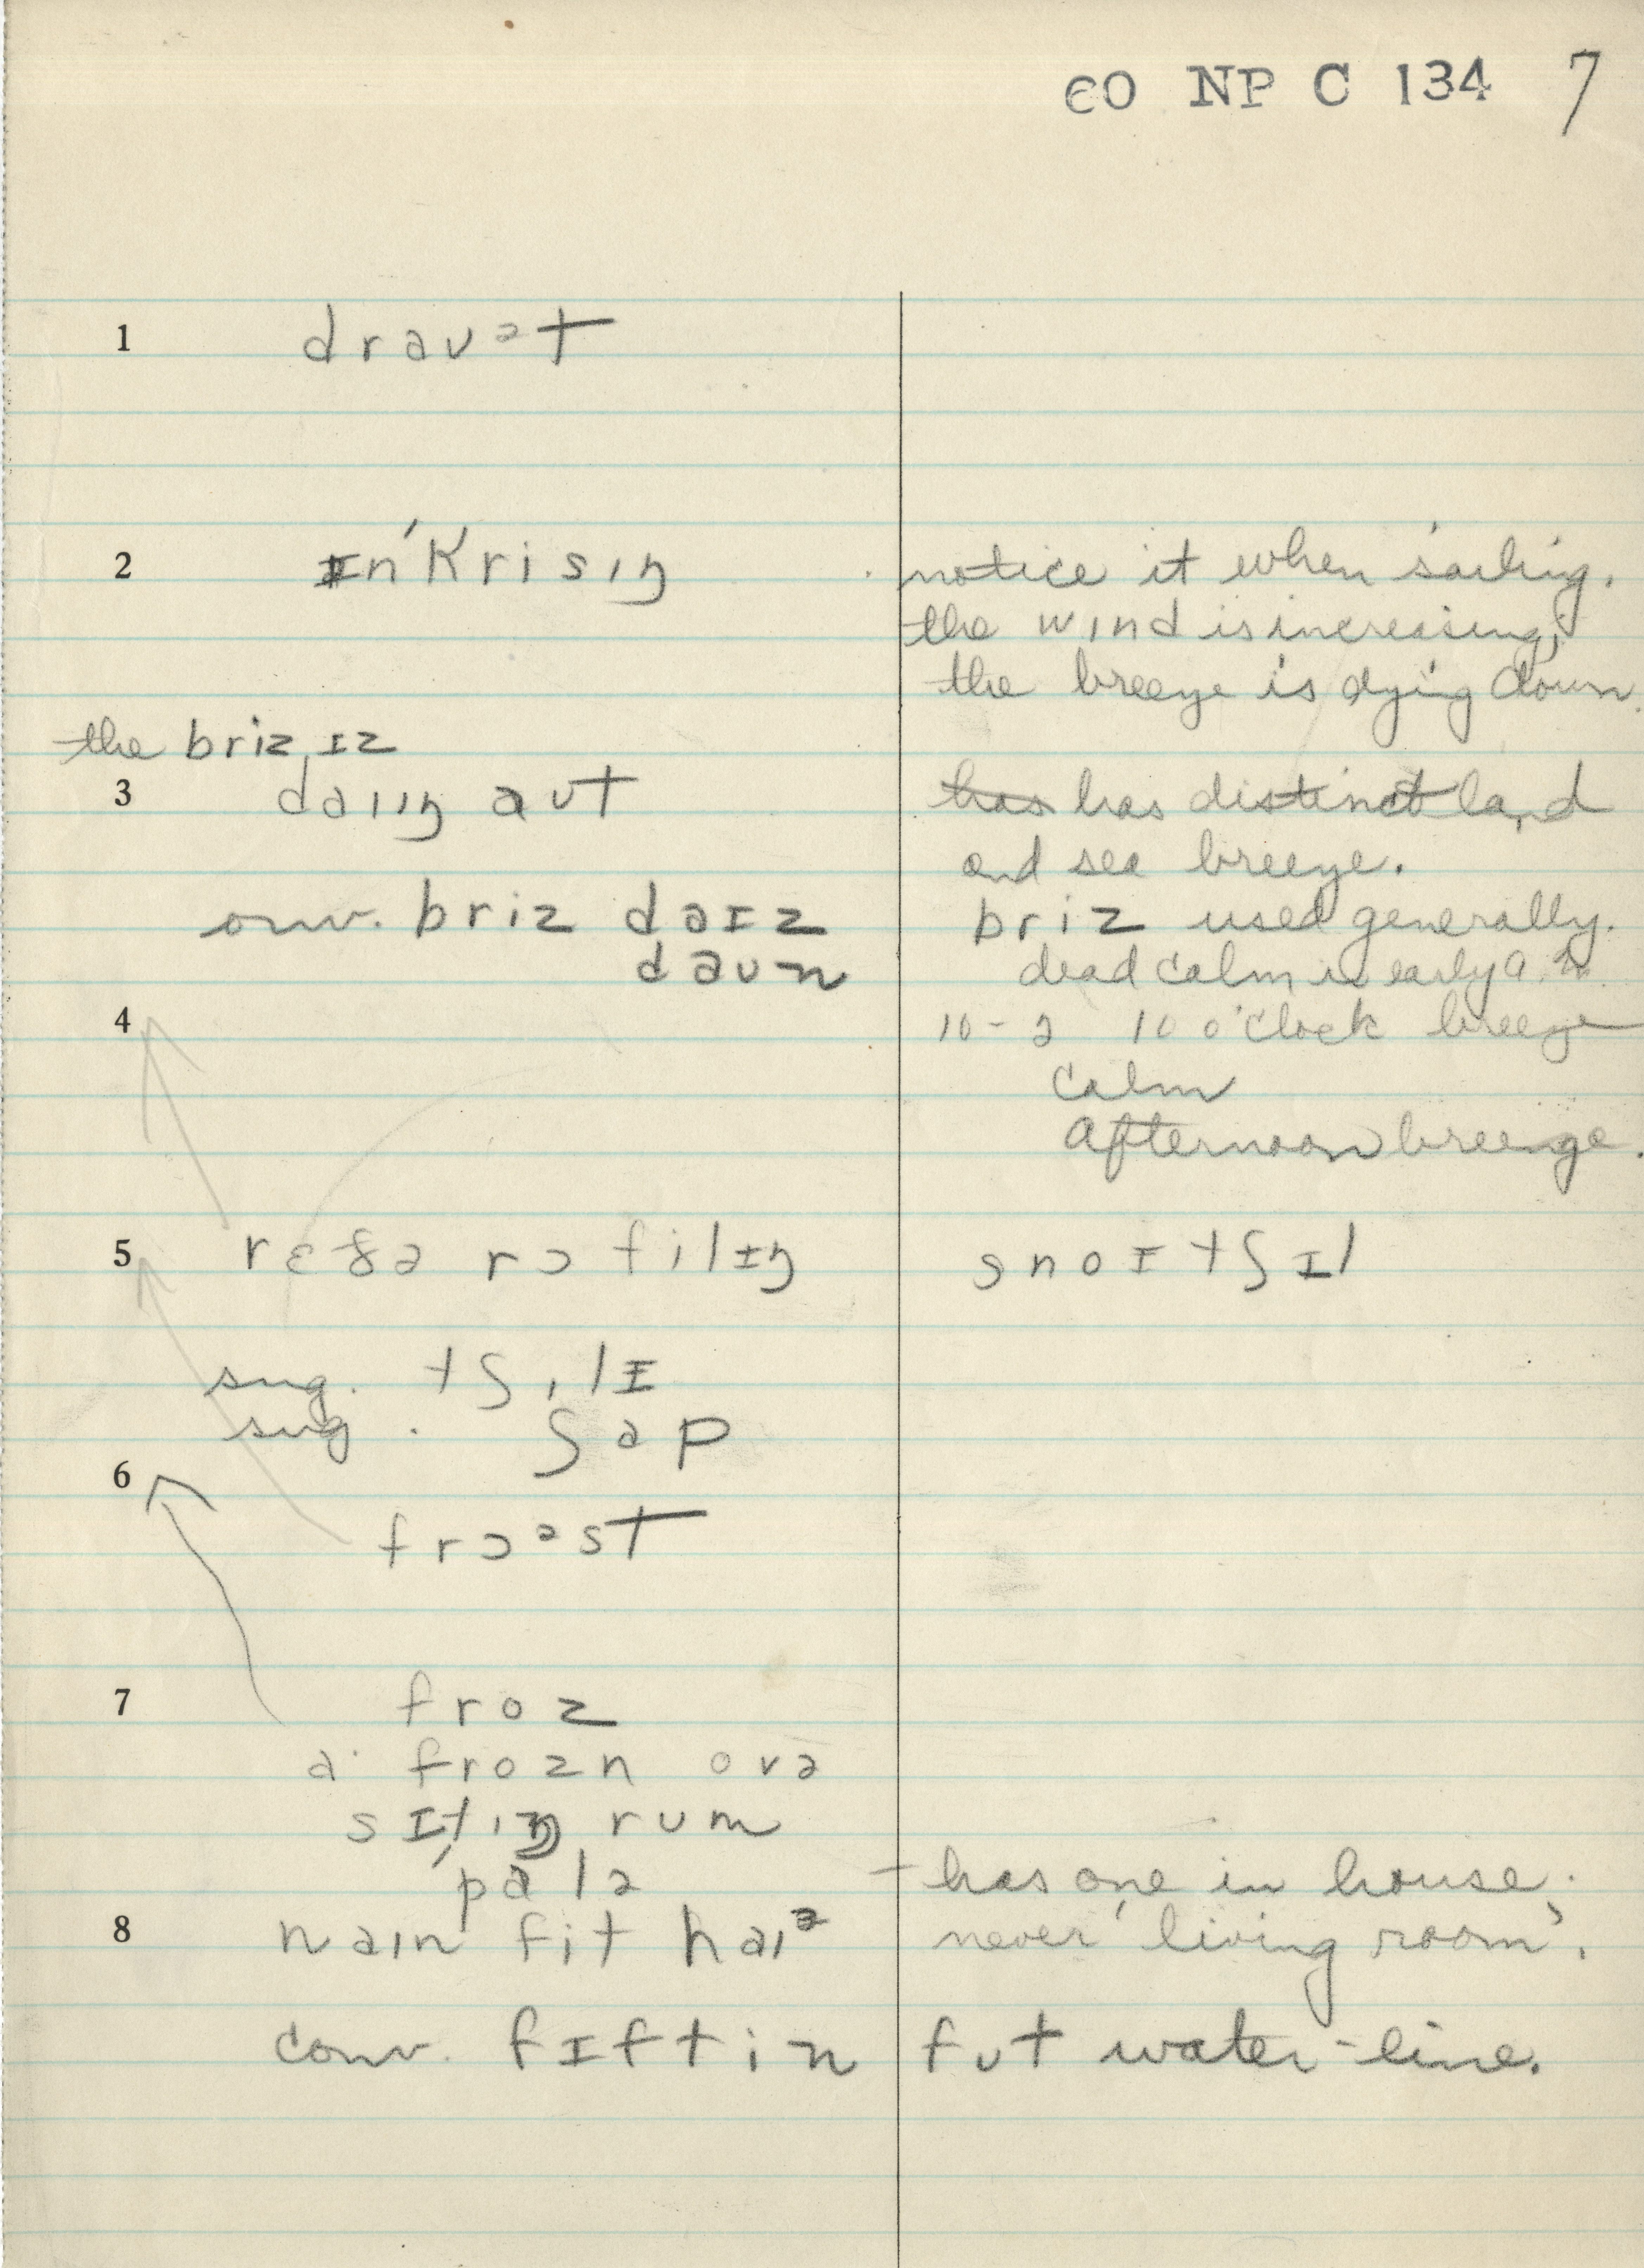 60 NP C 134 7
1 drauət
2 ɪn'krisɪŋ notice it when sailing.
the wɪnd is increasing,
the breeze is dying down.
the briz ɪz
3 daɪɪŋ aut has has distinct land
and sea breeze.
conv. briz daɪz briz used generally.
daun dead calm is early a.m.
4 10 - 2 10 o'clock breeze
calm
Afternoon breeze.
5 rɛðə rɔ filɪŋ ə no ɪtʃɪl
sug. tʃɪlɪ
sug. ʃap
6
frɔəst
7 froz
a frozn ovə
sɪtɪŋ rum
'palə - has one in house.
8 naɪn fit haɪə never 'living room'.
conv. fɪftin fut water-line.